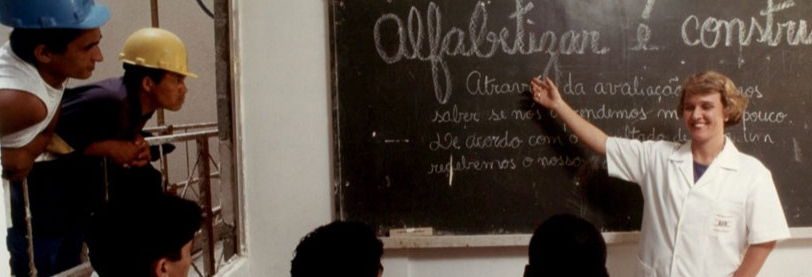 alfabetizar é constru
Através da avaliação
saber se nós aprendemos pouco.
De acordo com o resultado de um
recebemos o nosso